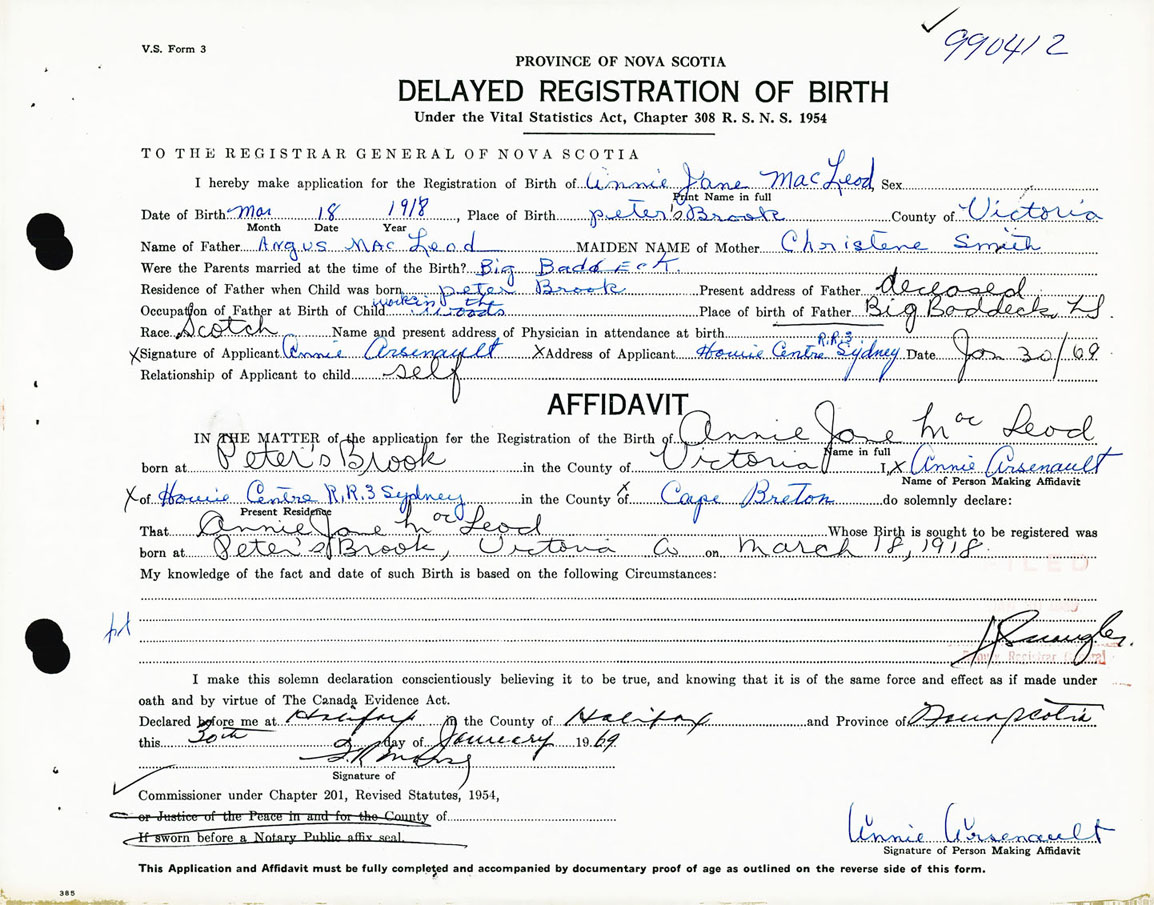 990412
V.S. Form 3
PROVINCE OF NOVA SCOTIA
DELAYED REGISTRATION OF BIRTH
Under the Vital Statistics Act, Chapter 308 R. S. N. S. 1954
TO THE REGISTRAR GENERAL OF NOVA SCOTIA
I hereby make application for the Registration of Birth of Annie Jane MacLeod, Sex
Print Name in full
Date of Birth Mar 18 1918, Place of Birth peter's Brook County of Victoria
Month Date Year
Name of Father Angus MacLeod MAIDEN NAME of Mother Christene Smith
Were the Parents married at the time of the Birth? Big Baddeck.
Residence of Father when Child was born peter Brook Present address of Father deceased
Occupation of Father at Birth of Child work in the woods Place of birth of Father Big Baddeck, NS.
Race Scotch Name and present address of Physician in attendance at birth
X Signature of Applicant Annie Arsenault X Address of Applicant Howie Centre R.R.3 Sydney Date Jan 30/69
Relationship of Applicant to child self
AFFIDAVIT
IN THE MATTER of the application for the Registration of the Birth of Annie Jane MacLeod
Name in full
born at Peter's Brook in the County of Victoria I, X Annie Arsenault
Name of Person Making Affidavit
X of Howie Centre R.R.3 Sydney in the County of X Cape Breton do solemnly declare:
Present Residence
That Annie Jane MacLeod Whose Birth is sought to be registered was
born at Peter's Brook, Victoria Co on March 18, 1918.
My knowledge of the fact and date of such Birth is based on the following Circumstances:
FILED
Deputy Registrar General
I make this solemn declaration conscientiously believing it to be true, and knowing that it is of the same force and effect as if made under
oath and by virtue of The Canada Evidence Act.
Declared before me at Halifax in the County of Halifax and Province of Nova Scotia
this 30th day of January 1969.
Signature of
Commissioner under Chapter 201, Revised Statutes, 1954,
or Justice of the Peace in and for the County of
If sworn before a Notary Public affix seal.
Annie Arsenault
Signature of Person Making Affidavit
This Application and Affidavit must be fully completed and accompanied by documentary proof of age as outlined on the reverse side of this form.
385